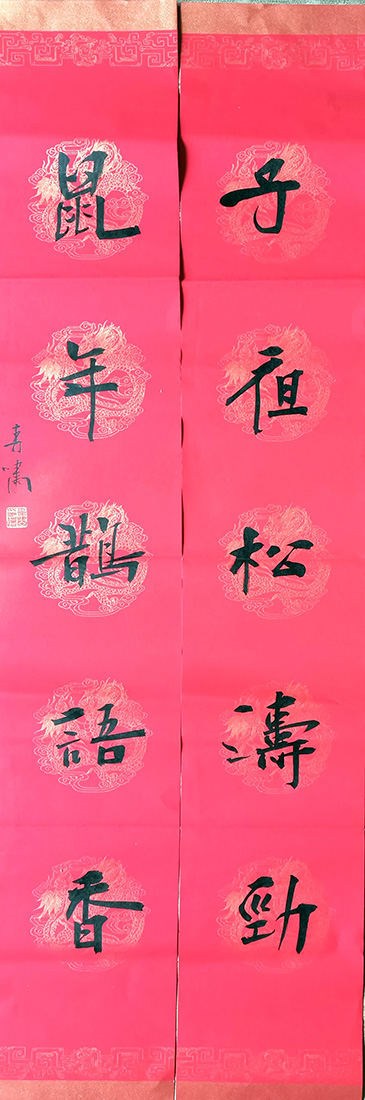 子祖松濤勁
鼠年鵲語香
青嘯